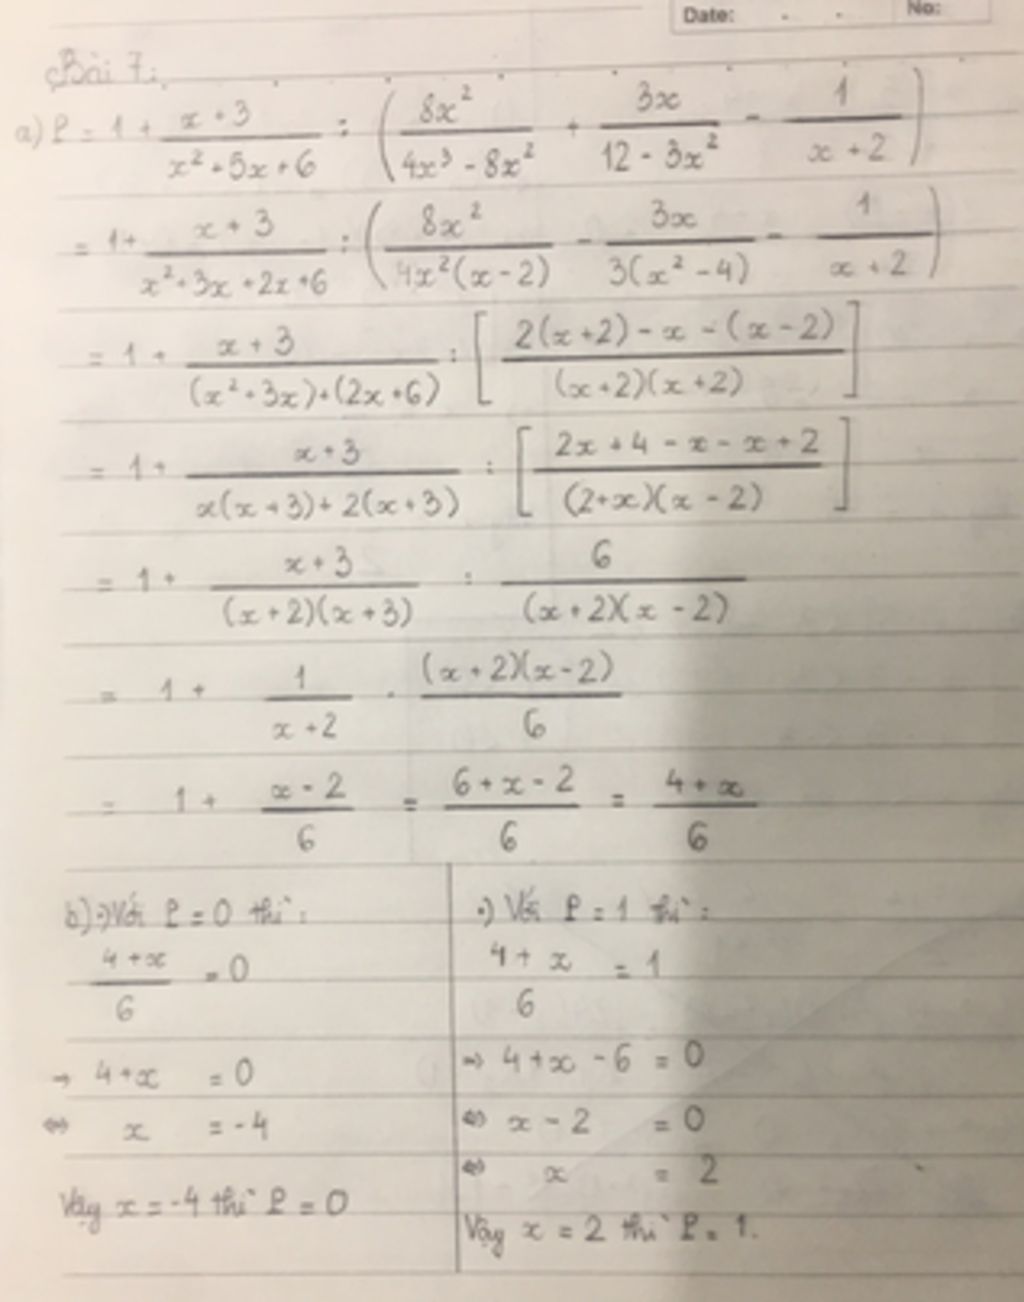 Date: . . No:
Bài 7:
a) P = 1 + \frac{x+3}{x^2+5x+6} : \left( \frac{8x^2}{4x^3-8x^2} + \frac{3x}{12-3x^2} - \frac{1}{x+2} \right)
= 1 + \frac{x+3}{x^2+3x+2x+6} : \left( \frac{8x^2}{4x^2(x-2)} - \frac{3x}{3(x^2-4)} - \frac{1}{x+2} \right)
= 1 + \frac{x+3}{(x^2+3x)+(2x+6)} : \left[ \frac{2(x+2)-x-(x-2)}{(x+2)(x+2)} \right]
= 1 + \frac{x+3}{x(x+3)+2(x+3)} : \left[ \frac{2x+4-x-x+2}{(2+x)(x-2)} \right]
= 1 + \frac{x+3}{(x+2)(x+3)} : \frac{6}{(x+2)(x-2)}
= 1 + \frac{1}{x+2} . \frac{(x+2)(x-2)}{6}
= 1 + \frac{x-2}{6} = \frac{6+x-2}{6} = \frac{4+x}{6}
b) •) Với P = 0 thì:
\frac{4+x}{6} = 0
→ 4+x = 0
⇔ x = -4
Vậy x = -4 thì P = 0
•) Với P = 1 thì:
\frac{4+x}{6} = 1
⇒ 4+x-6 = 0
⇔ x-2 = 0
⇔ x = 2
Vậy x = 2 thì P = 1.